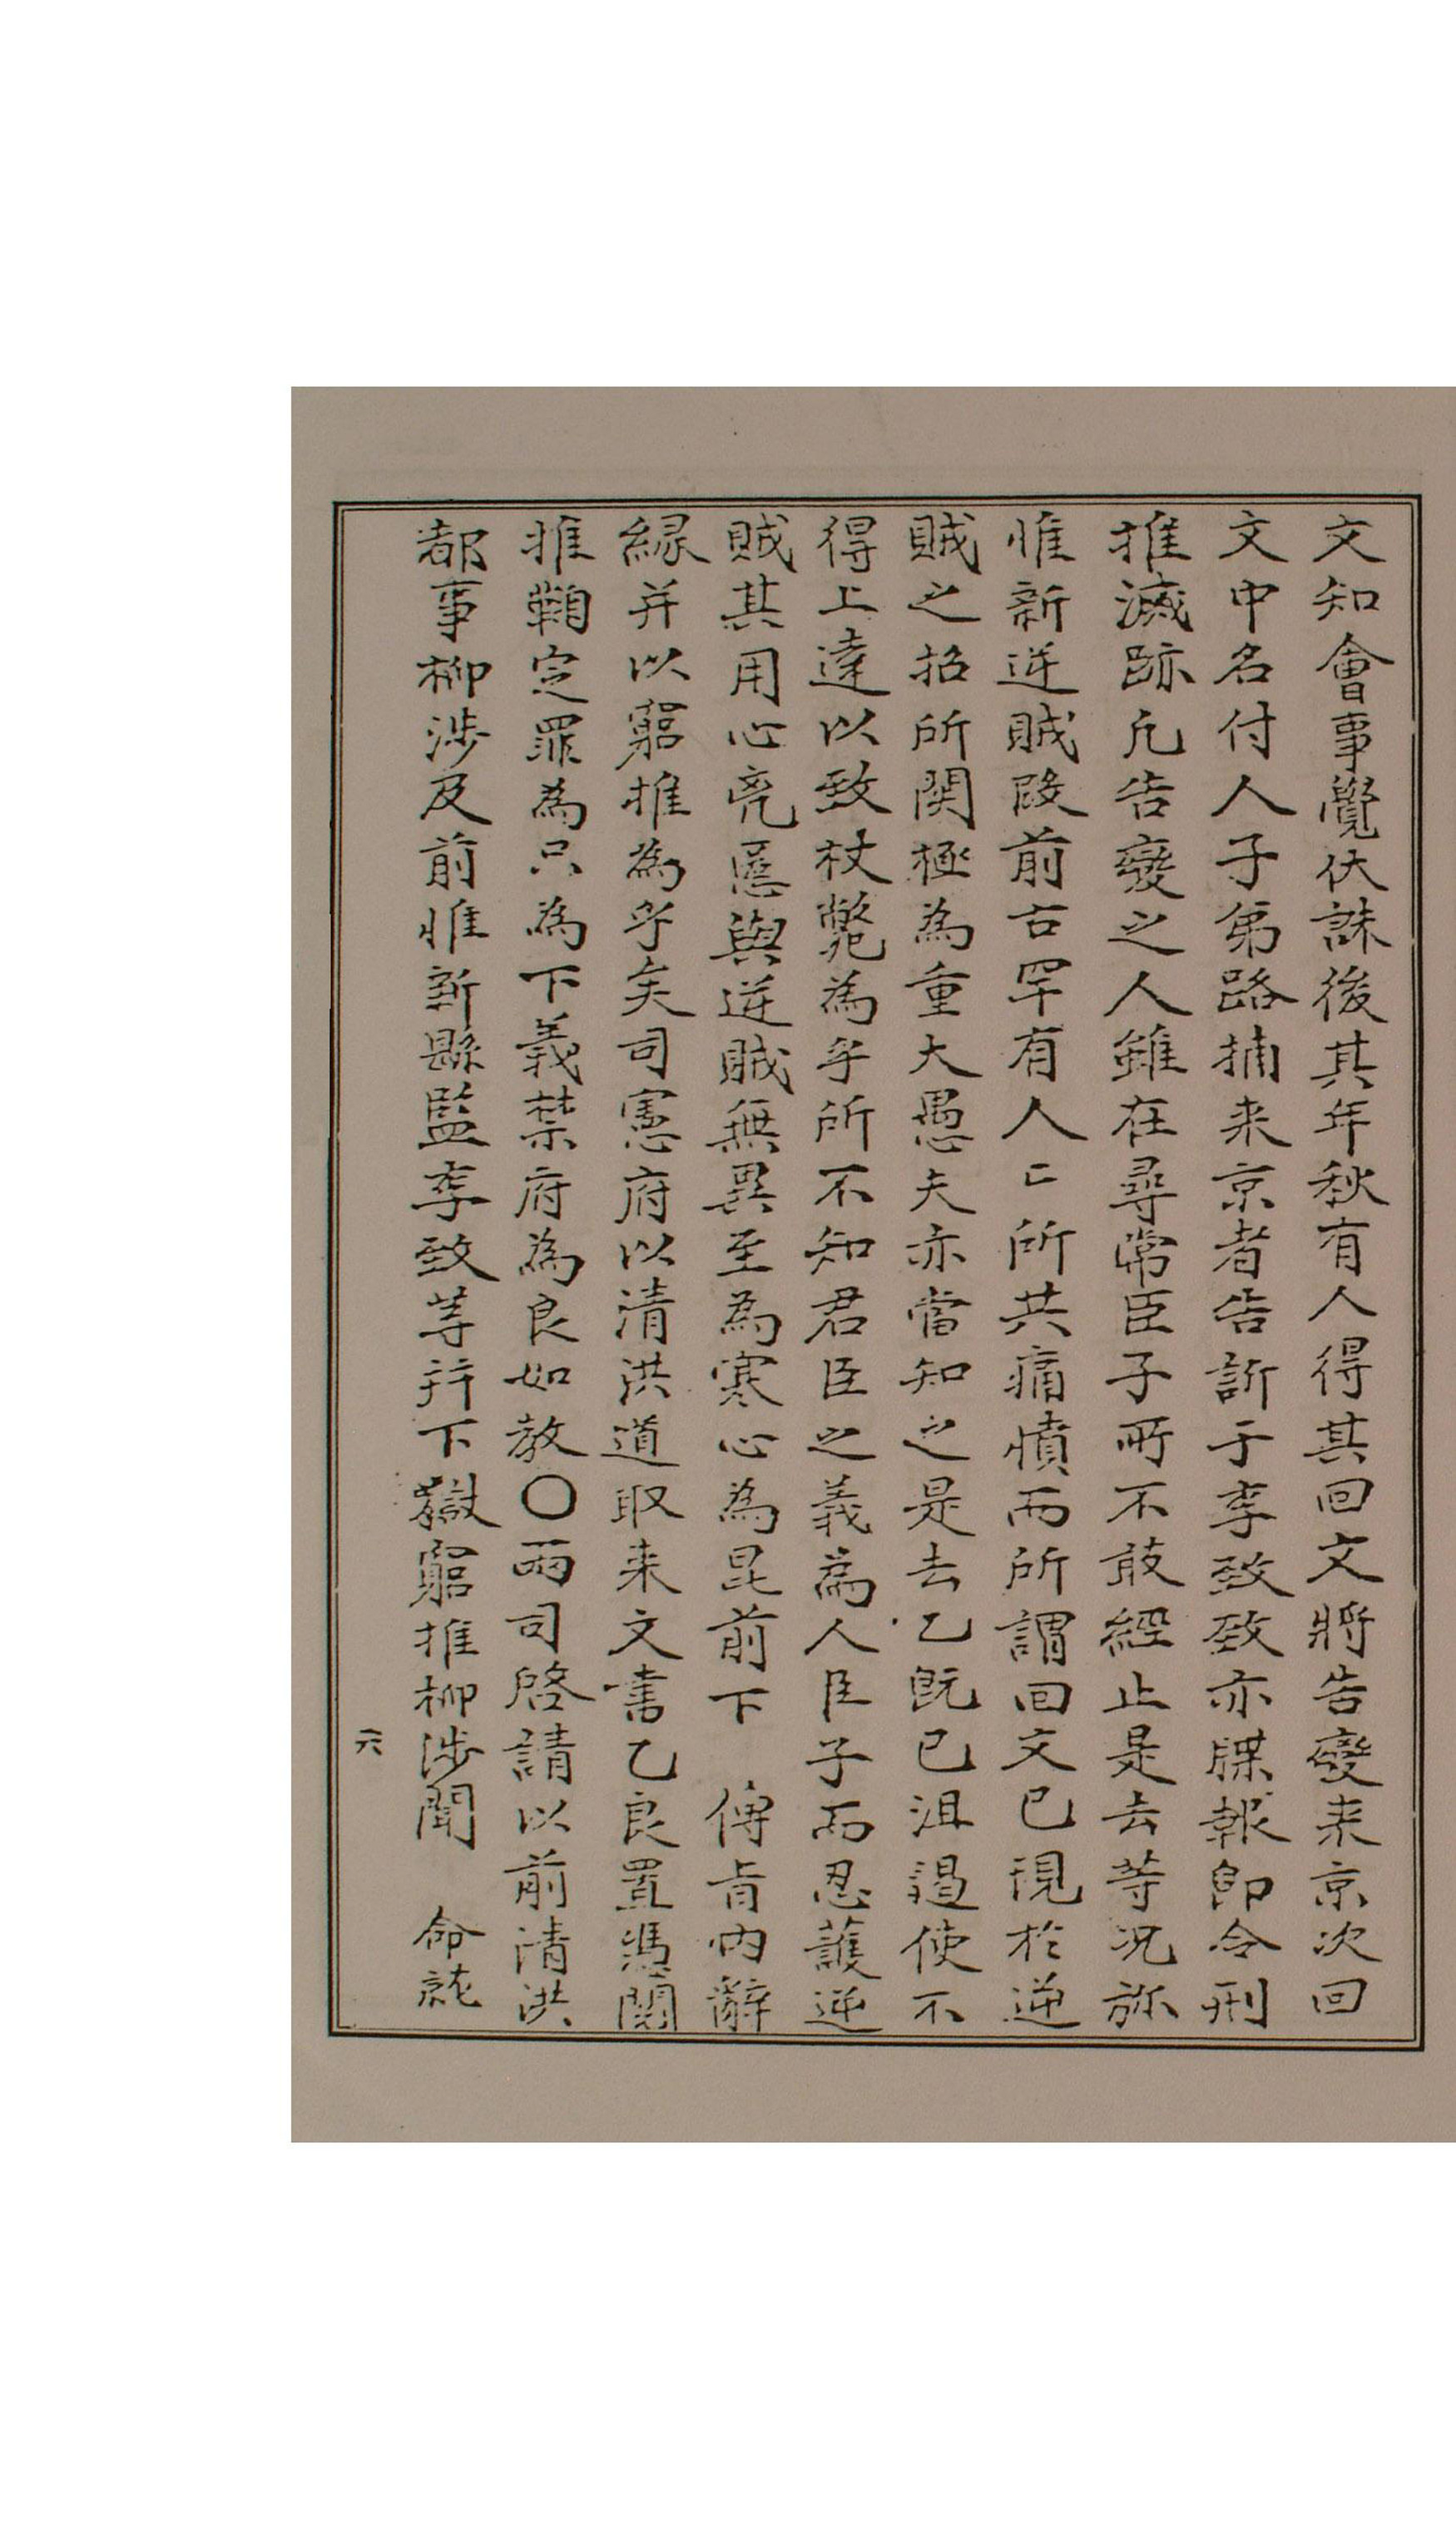 文知會事覺伏誅後其年秋有人得其回文將告變来京次回
文中名付人子弟路捕来京者告訴于李致致亦牒報卽令刑
推滅跡凡告變之人雖在尋常臣子所不敢經止是去等况旀
惟新逆賊段前古罕有人〻所共痛憤而所謂回文已現於逆
賊之招所関極為重大愚夫亦當知之是去乙旣已沮遏使不
得上達以致杖斃為乎所不知君臣之義為人臣子而忍護逆
賊其用心兇慝與逆賊無異至為寒心為昆前下　傳旨內辭
緣并以窮推為乎矣司憲府以清洪道取来文書乙良置憑閱
推鞫定罪為只為下義禁府為良如教〇兩司啓請以前清洪
都事柳涉及前惟新縣監李致等并下獄窮推柳涉聞　命就
六